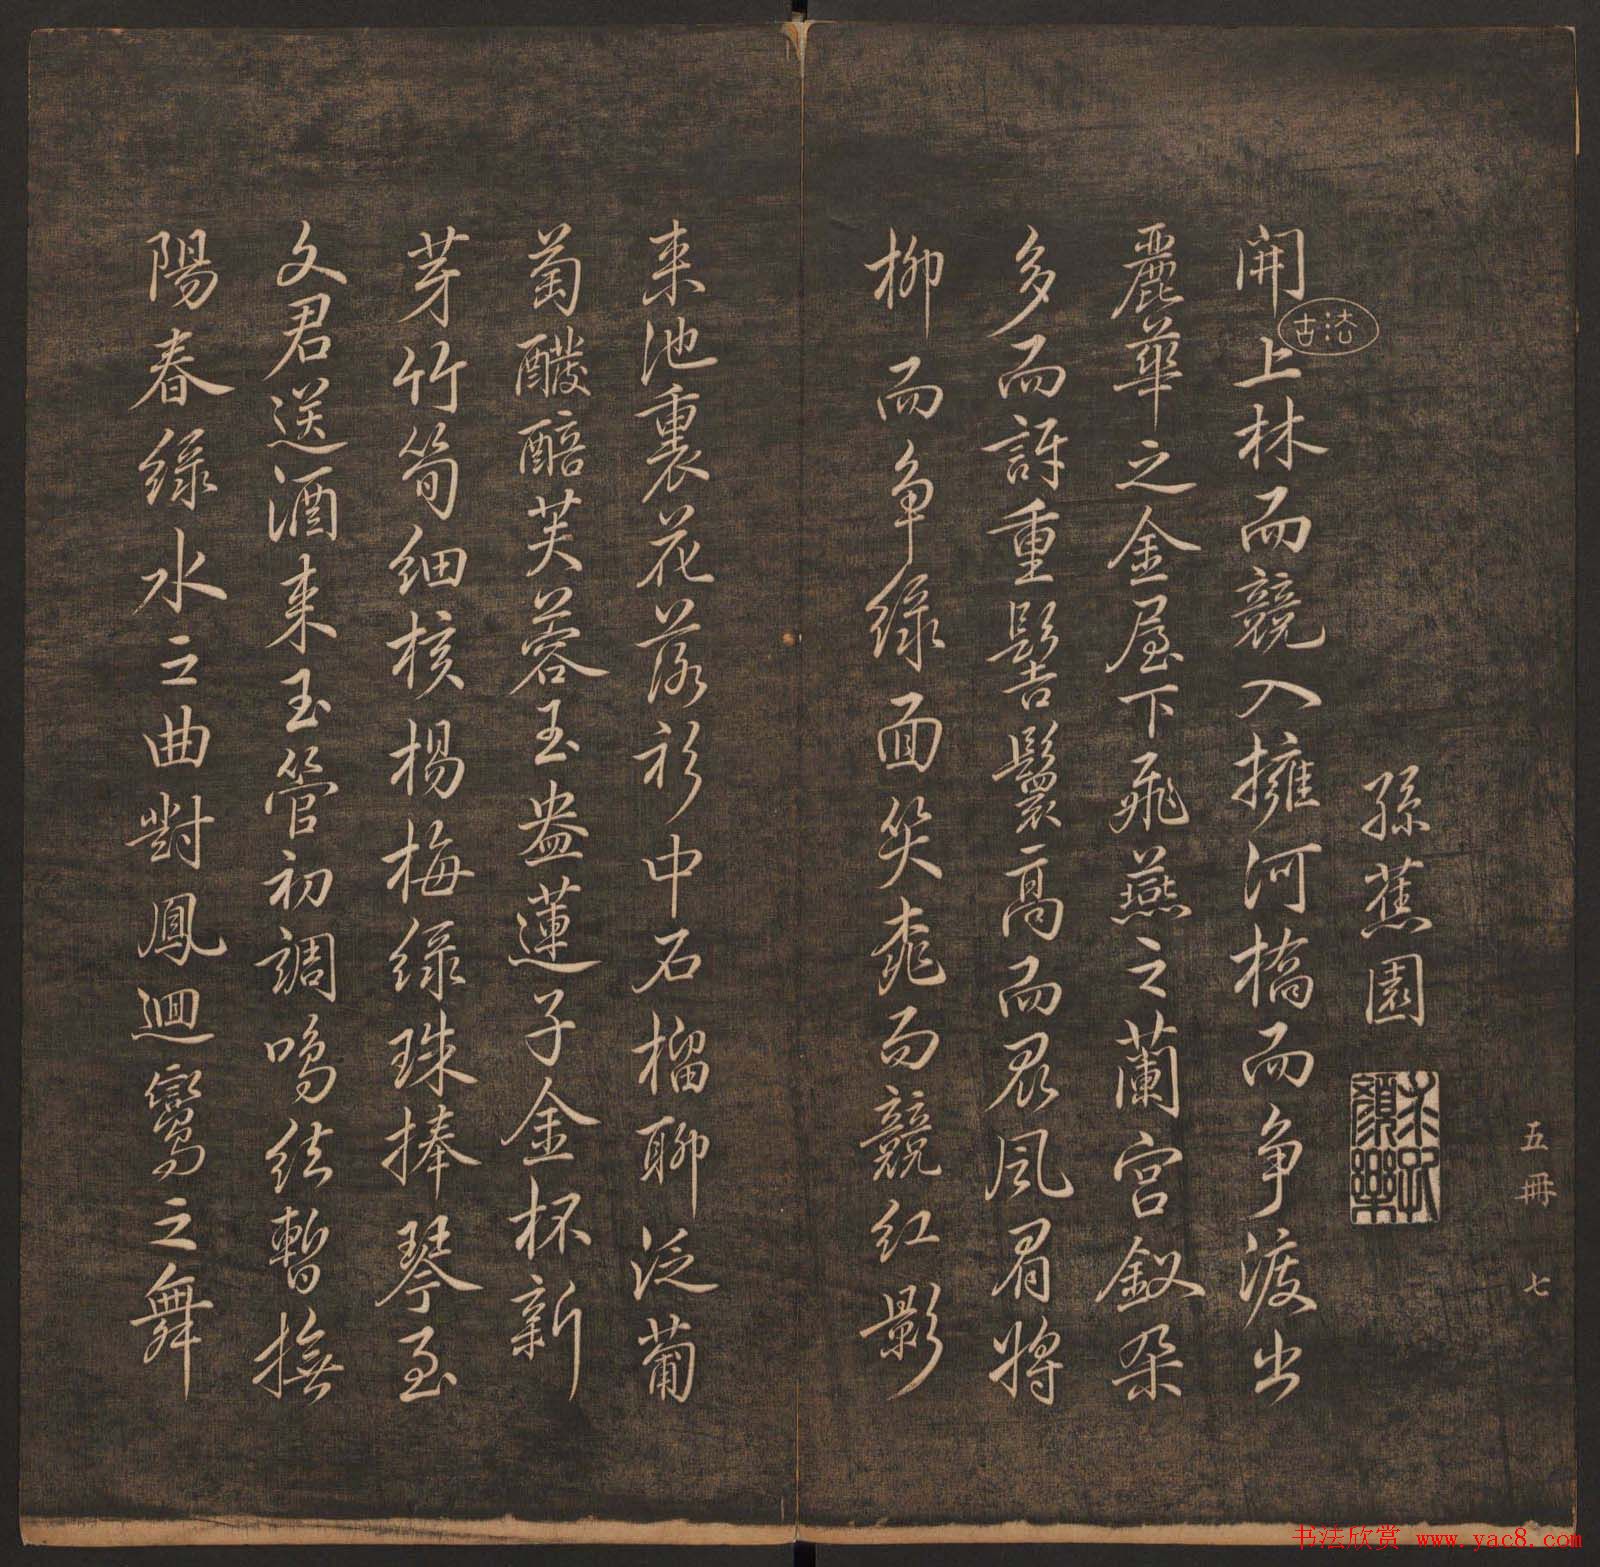 五冊 七
孫蕉園
法古
開上林而競入擁河橋而爭渡出
麗華之金屋下飛燕之蘭宮釵朵
多而訝重髻鬟高而畏風眉將
柳而爭綠面笑桃而競紅影
來池裏花落衫中石榴聊泛葡
萄醱醅芙蓉玉盎蓮子金杯新
芽竹筍細核楊梅綠珠捧琴至
文君送酒來玉管初調鳴絃暫撫
陽春綠水之曲對鳳迴鸞之舞
书法欣赏 www.yac8.com